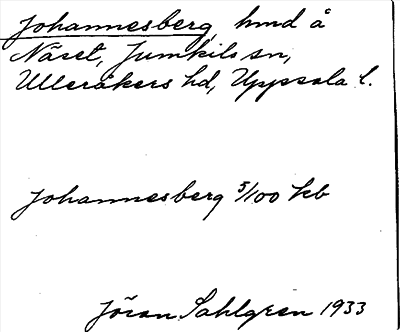 Johannesberg, hmd å
Näset, Jumkils sn,
Ulleråkers hd, Uppsala l.
Johannesberg 5/100 kb
Jöran Sahlgren 1933